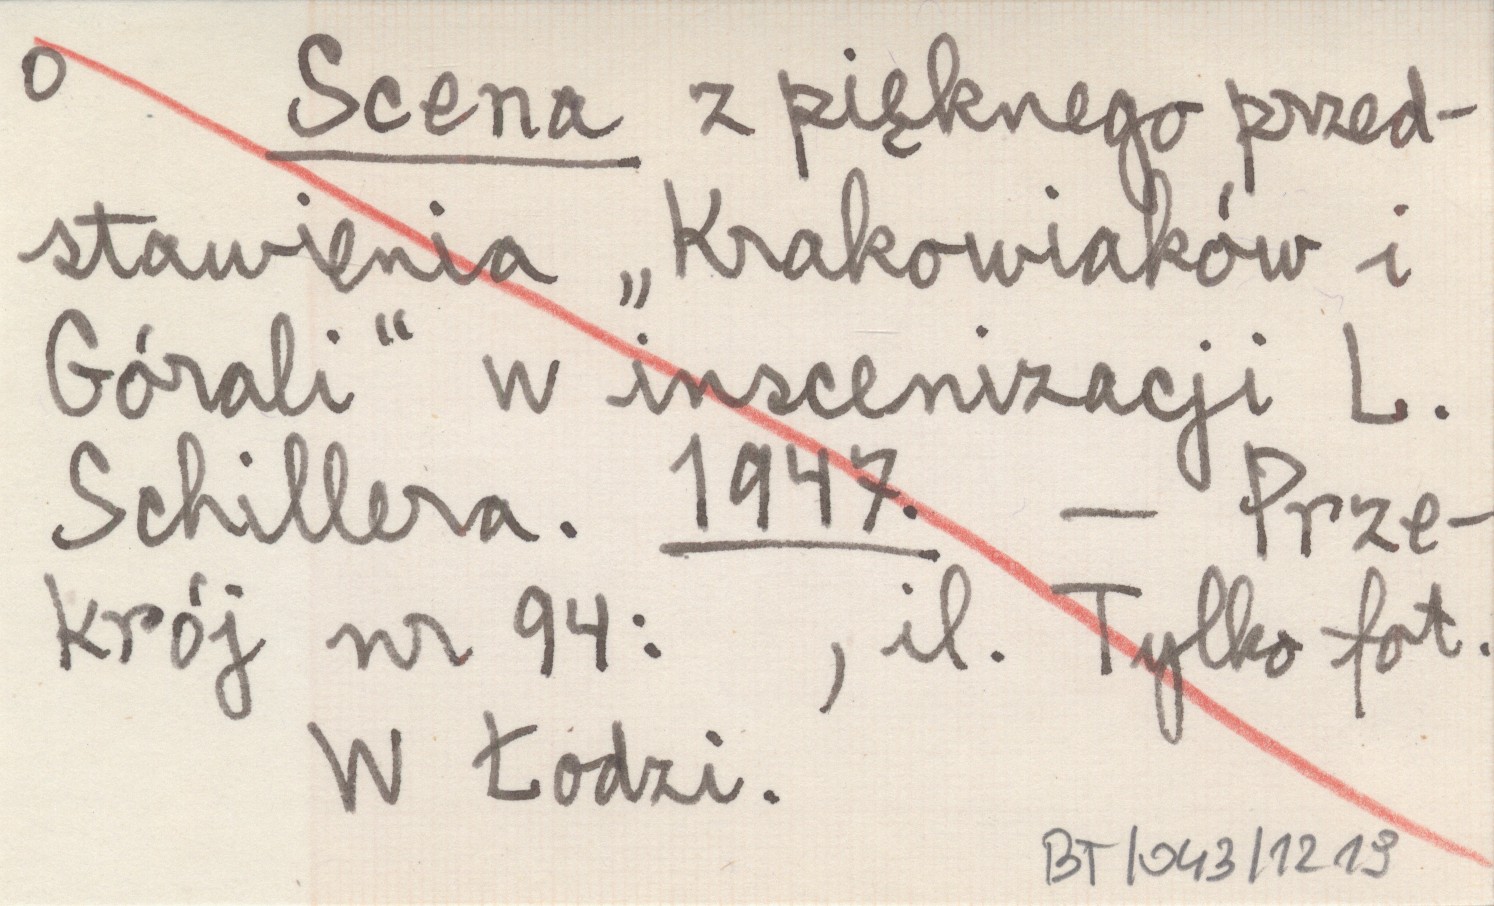 o Scena z pięknego przed-
stawienia „Krakowiaków i
Górali“ w inscenizacji L.
Schillera. 1947. — Prze-
krój nr 94: , il. Tylko fot.
W Łodzi.
BT/043/1219